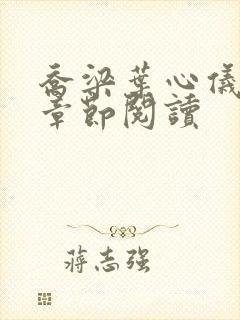 喬梁葉心儀
章節閱讀
蔣志强